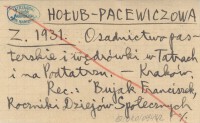 HOŁUB-PACEWICZOWA
Z. 1931. Osadnictwo pas-
terskie i wędrówki w Tatrach
i na Podtatrzu. — Kraków.
Rec.: Bujak Franciszek,
Roczniki Dziejów Społecznych